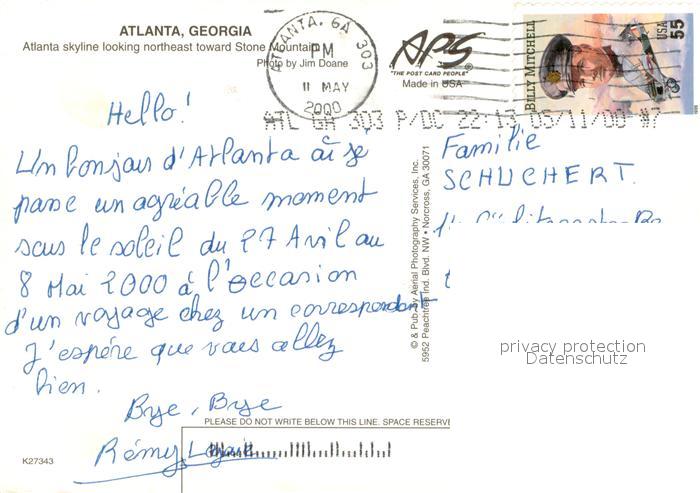 ATLANTA, GEORGIA
Atlanta skyline looking northeast toward Stone Mountain
Photo by Jim Doane
ATLANTA, GA 303
PM
11 MAY
2000
APS
"THE POST CARD PEOPLE"
Made in USA
BILLY MITCHELL
USA
55
ATL GA 303 P/DC 22:13 05/11/00 #7
Hello!
Un bonjour d'Atlanta où je
passe un agréable moment
sous le soleil du 27 Avril au
8 Mai 2000 à l'occasion
d'un voyage chez un correspondant
J'espére que vous allez
bien.
Bye, Bye
Rémy
Familie
SCHUCHERT.
© & Pub. by Aerial Photography Services, Inc.
5952 Peachtree Ind. Blvd. NW • Norcross, GA 30071
privacy protection
Datenschutz
PLEASE DO NOT WRITE BELOW THIS LINE. SPACE RESERVE
K27343